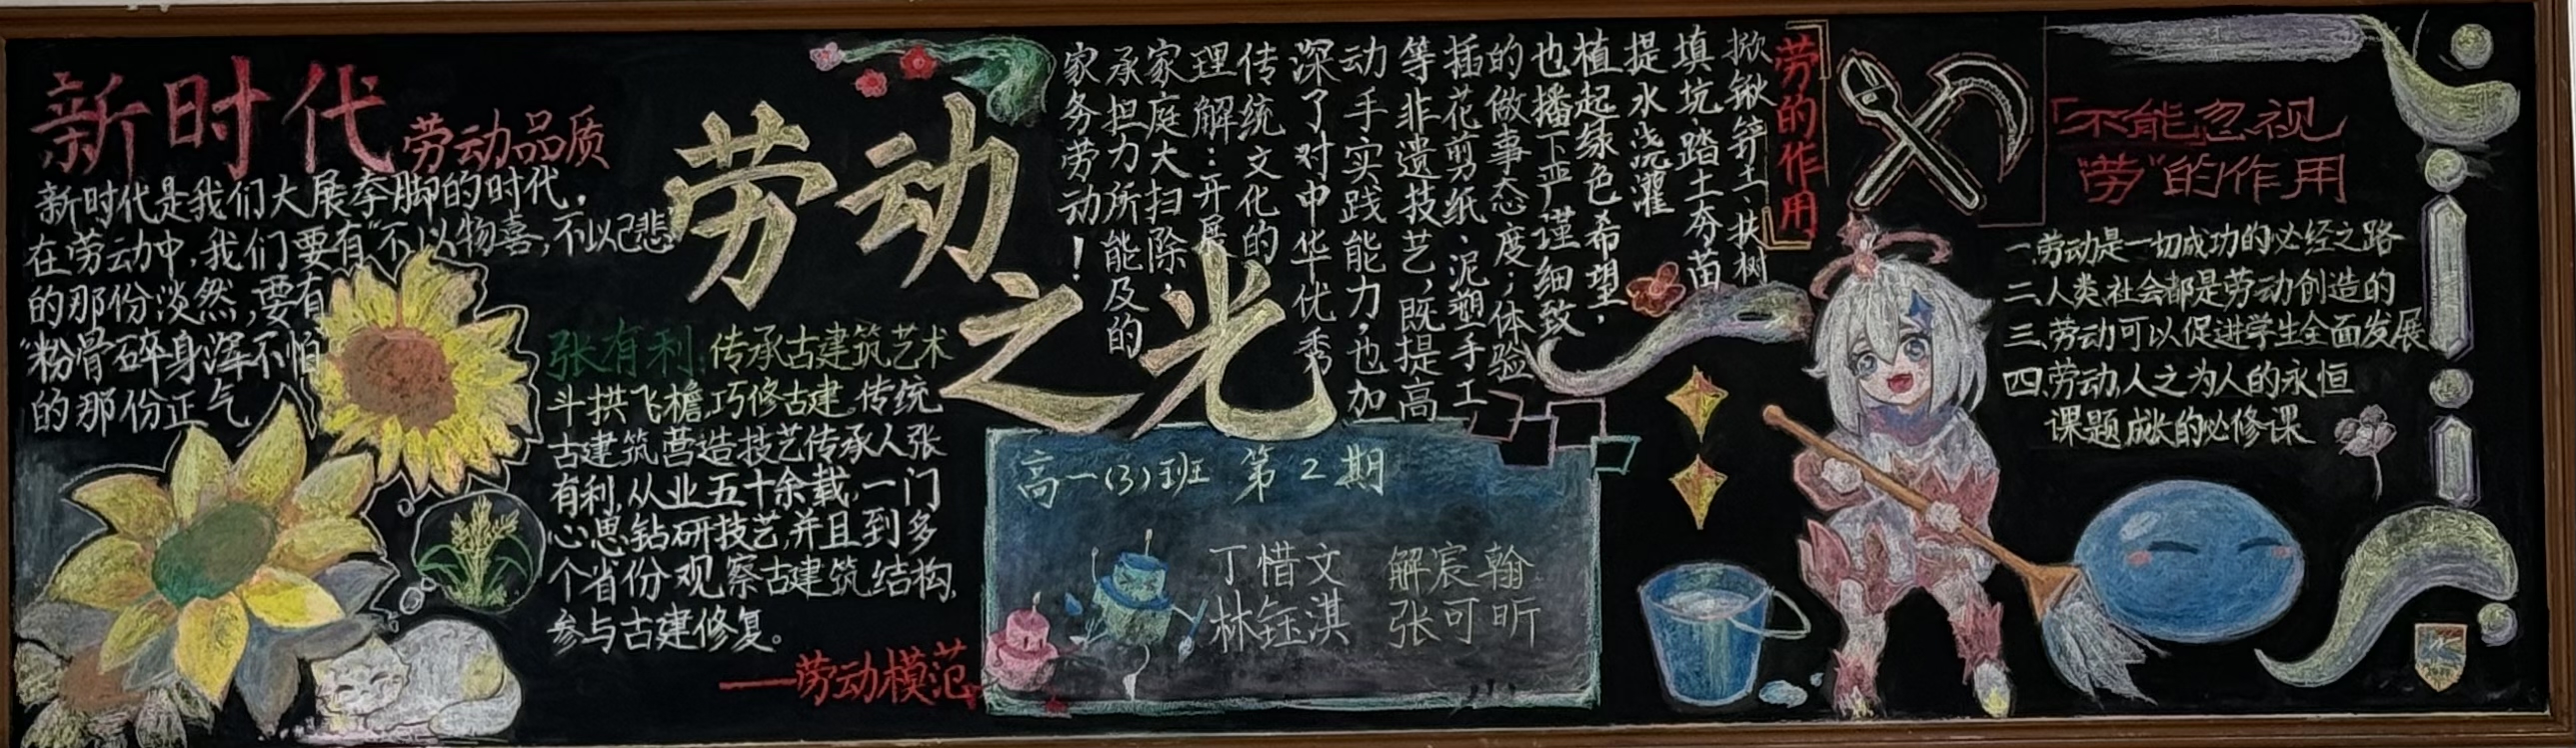 新时代
劳动品质
新时代是我们大展拳脚的时代，
在劳动中，我们要有“不以物喜，不以己悲”
的那份淡然，要有
“粉骨碎身浑不怕”
的那份正气
劳动
之光
张有利：传承古建筑艺术
斗拱飞檐，巧修古建。传统
古建筑营造技艺传承人张
有利，从业五十余载，一门
心思钻研技艺，并且到多
个省份观察古建筑结构，
参与古建修复。
——劳动模范
劳的作用
掀锹铲土、扶树
填坑、踏土夯苗
提水浇灌
植起绿色希望，
也播下严谨细致
的做事态度；体验
插花剪纸、泥塑手工
等非遗技艺，既提高
动手实践能力，也加
深了对中华优秀
传统文化的
理解：开展
家庭大扫除，
承担力所能及的
家务劳动！
高一(3)班 第2期
丁惜文 解宸翰
林钰淇 张可昕
「不能忽视
“劳”的作用
一、劳动是一切成功的必经之路
二、人类社会都是劳动创造的
三、劳动可以促进学生全面发展
四、劳动，人之为人的永恒
课题，成长的必修课